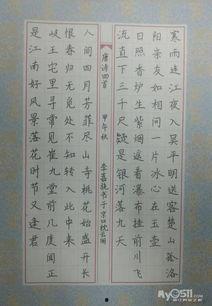 寒雨连江夜入吴平明送客楚山孤洛
阳亲友如相问一片冰心在玉壶
日照香炉生紫烟遥看瀑布挂前川飞
流直下三千尺疑是银河落九天
唐诗四首
甲午秋
李嘉 书于京口枕云阁
人间四月芳菲尽山寺桃花始盛开长
恨春归无觅处不知转入此中来
岐王宅里寻常见崔九堂前几度闻正
是江南好风景落花时节又逢君
My0511.com